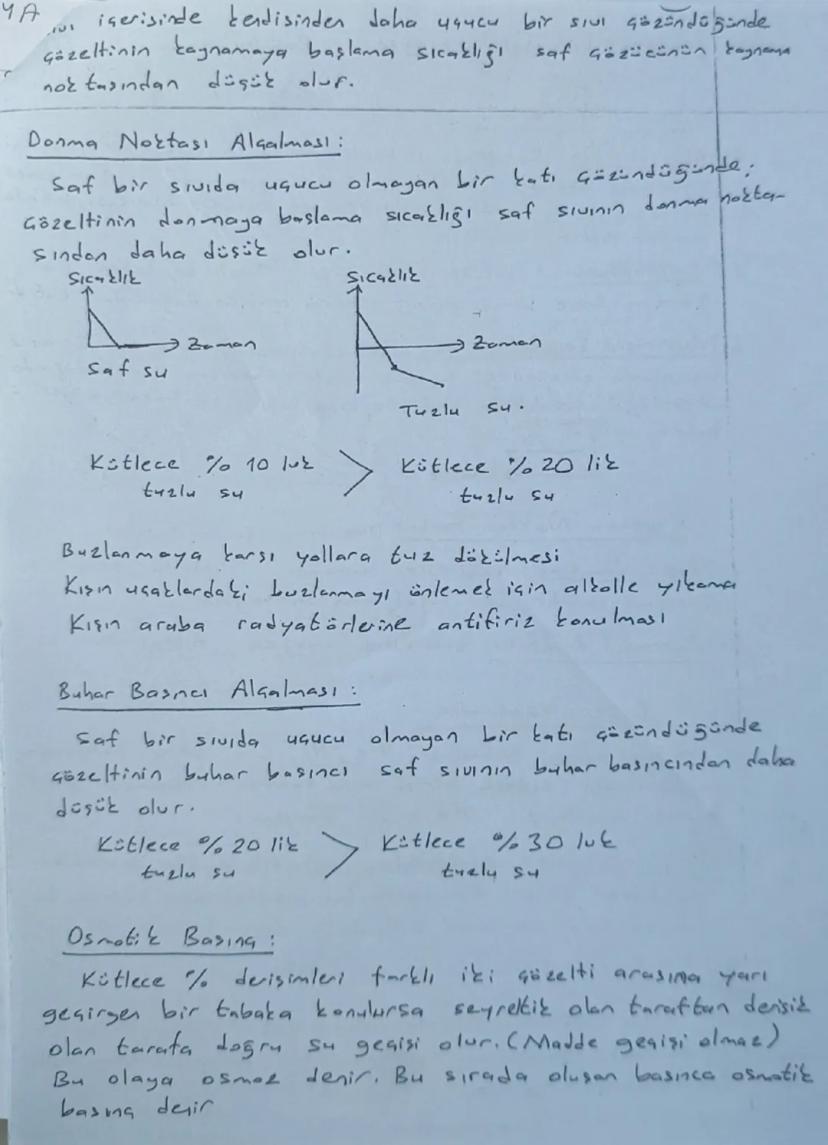 YA
içerisinde kendisinden daha uçucu bir sıvı çözündüğünde
çözeltinin kaynamaya başlama sıcaklığı saf çözücünün kaynama
noktasından düşük olur.
Donma Noktası Alçalması:
Saf bir sıvıda uçucu olmayan bir katı çözündüğünde;
çözeltinin donmaya başlama sıcaklığı saf sıvının donma nokta-
sından daha düşük olur.
Sıcaklık Sıcaklık
Zaman Zaman
Saf su
Tuzlu su.
Kütlece % 10 luk > Kütlece % 20 lik
tuzlu su tuzlu su
Buzlanmaya karşı yollara tuz dökülmesi
Kışın uçaklardaki buzlanmayı önlemek için alkolle yıkama
Kışın araba radyatörlerine antifiriz konulması
Buhar Basıncı Alçalması:
Saf bir sıvıda uçucu olmayan bir katı çözündüğünde
çözeltinin buhar basıncı saf sıvının buhar basıncından daha
düşük olur.
Kütlece % 20 lik > Kütlece % 30 luk
tuzlu su tuzlu su
Osmotik Basınç:
Kütlece % derişimleri farklı iki çözelti arasına yarı
geçirgen bir tabaka konulursa seyreltik olan taraftan derişik
olan tarafa doğru su geçişi olur. (Madde geçişi olmaz)
Bu olaya osmoz denir. Bu sırada oluşan basınca osmotik
basınç denir